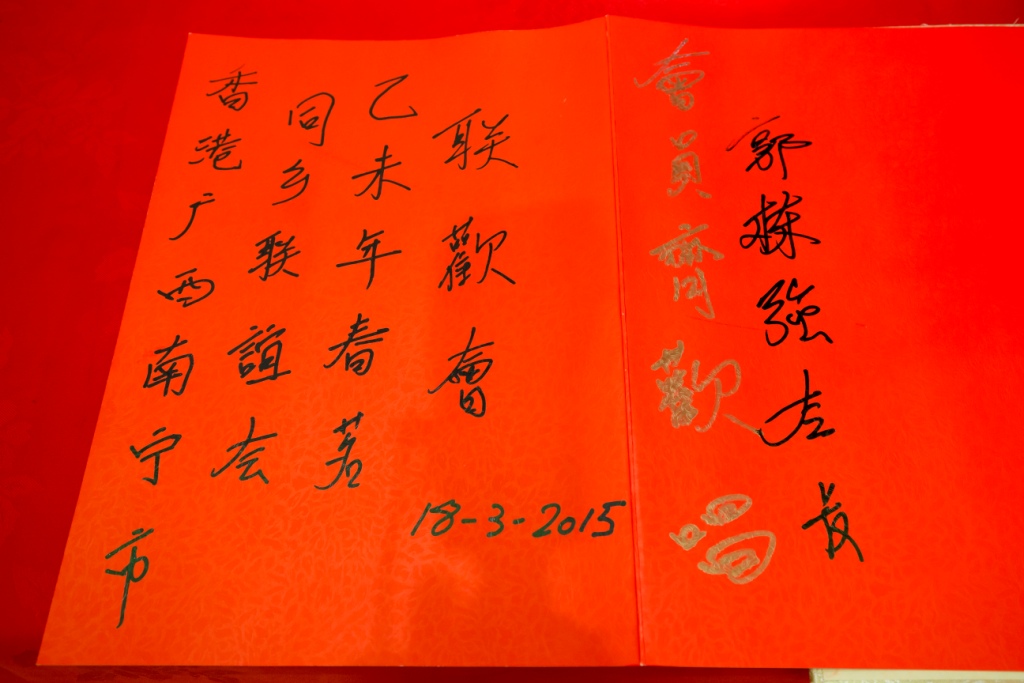 香港广西南宁市
同乡联誼会
乙未年春茗
联歡會
18-3-2015
會員齊歡唱
郭棟强会長